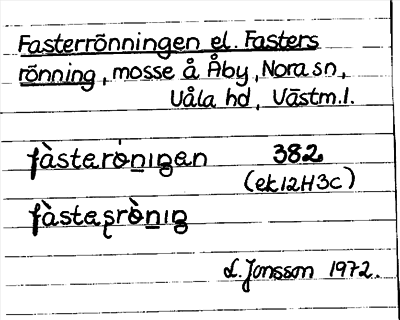 Fasterrönningen el. Fasters
rönning, mosse å Åby, Nora sn,
Våla hd, Västm.l.
fàsteròningen 382
(ek12H3C)
fàstesrònig
L. Jonsson 1972.